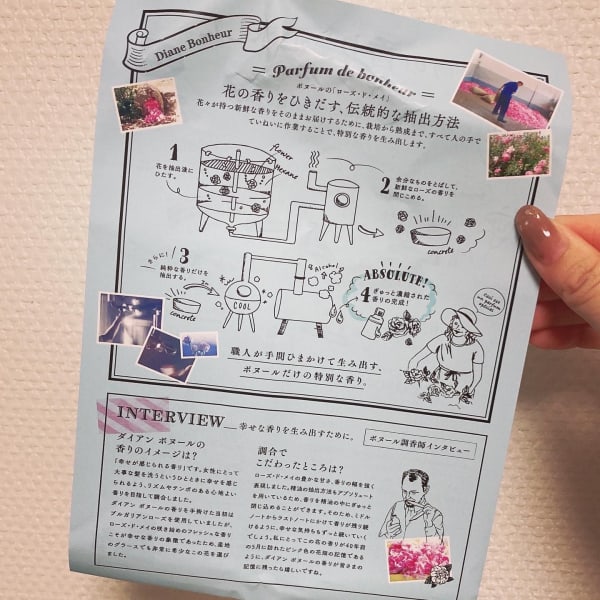 Diane Bonheur
Parfum de bonheur
ボヌールの「ローズ・ド・メイ」
花の香りをひきだす、伝統的な抽出方法
花々が持つ新鮮な香りをそのままお届けするために、栽培から熟成まで、すべて人の手で
ていねいに作業することで、特別な香りを生み出します。
1
花を抽出液に
ひたす。
flower
2
余分なものをとばして、
新鮮なローズの香りを
閉じこめる。
concrete
さらに!
3
純粋な香りだけを
抽出する。
concrete
COOL
Alcohol
ABSOLUTE!
4 ぎゅっと濃縮された
香りの完成!
職人が手間ひまかけて生み出す、
ボヌールだけの特別な香り。
INTERVIEW
幸せな香りを生み出すために。
ボヌール調香師インタビュー
ダイアン ボヌールの
香りのイメージは?
「幸せが感じられる香り」です。女性にとって
大事な髪を洗うというひとときに幸せを感じ
られるよう、リズムやテンポのある心地よい
香りを目指して調合しました。
ダイアン ボヌールの香りを手掛けた当初は
ブルガリアンローズを使用していましたが、
ローズ・ド・メイの咲き始めのフレッシュな香り
こそが幸せな香りの象徴であったため、産地
のグラースでも非常に希少なこの花を選び
ました。
調合で
こだわったところは?
ローズ・ド・メイの豊かな甘さ、香りの幅を強く
表現しました。精油の抽出方法もアブソリュート
を用いているため、香りを精油の中にぎゅっと
閉じ込めることができます。そのため、ミドル
ノートからラストノートにかけて香りが残り続
けるように、幸せな気持ちもずっと続いていく
でしょう。私にとってこの花の香りが40年前
の5月に訪れたピンク色の花畑の記憶である
ように、ダイアン ボヌールの香りが皆さまの
記憶に残ったら嬉しいですね。